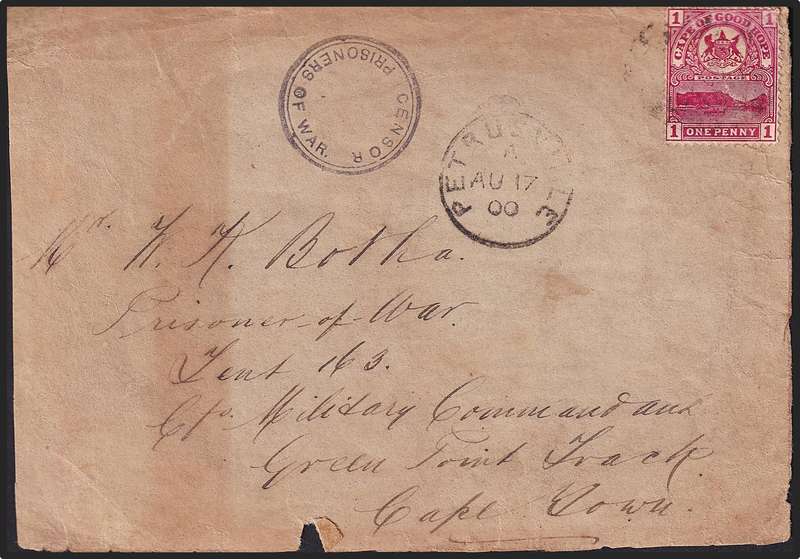 PRISONERS OF WAR.
CENSOR
PETRUSVILLE
A
AU 17
00
1 1
CAPE OF GOOD HOPE
POSTAGE
1 ONE PENNY 1
Mr. H. H. Botha.
Prisoner-of-War.
Tent 163.
C/o. Military Commandant
Green Point Track
Cape Town.